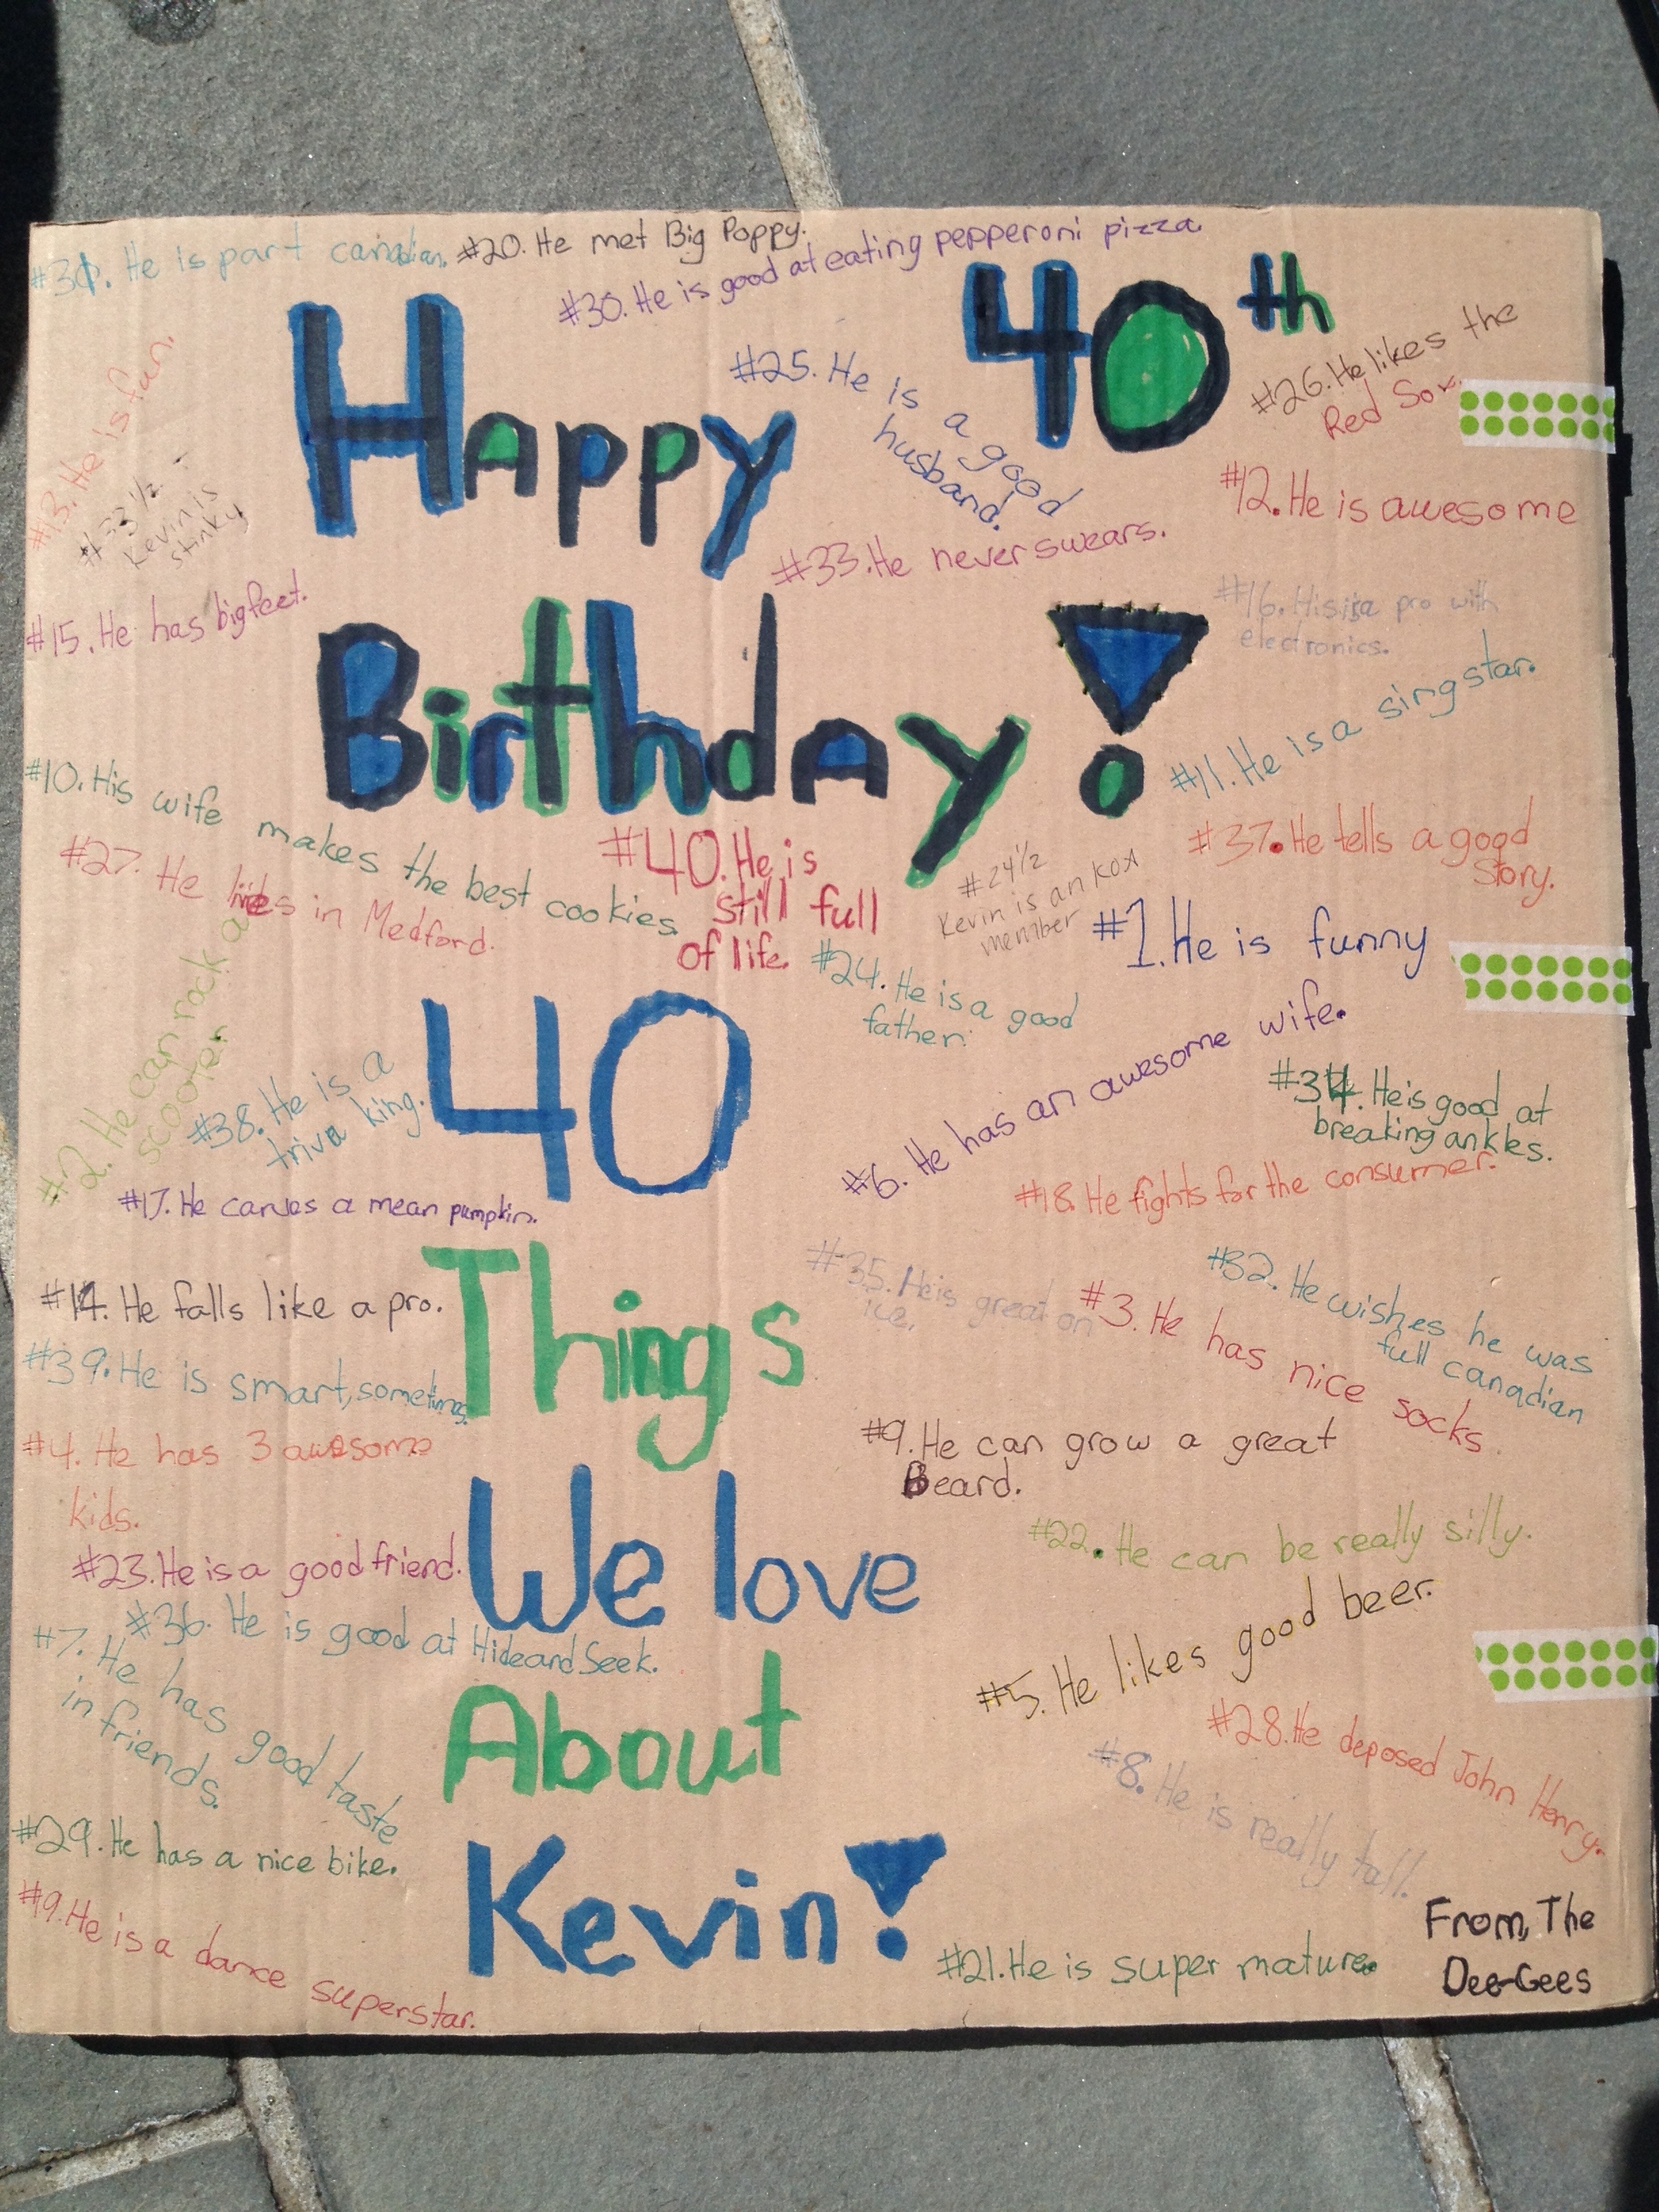 #31. He is part canadian.
#20. He met Big Poppy.
#30. He is good at eating pepperoni pizza.
Happy 40th
#25. He is a good
husband.
#26. He likes the
Red Sox.
#13. He is fun.
#33 1/2
Kevin is
stinky
#12. He is awesome
#33. He never swears.
#15. He has big feet.
#16. His is a pro with
electronics.
Birthday!
#11. He is a sing star.
#10. His wife makes the best cookies.
#27. He lives in Medford.
#40. He is
still full
of life.
#24 1/2
Kevin is an KOA
member
#37. He tells a good
story.
#1. He is funny
#24. He is a good
father.
#2. He can rock a
scooter
#38. He is a
triva king.
40
#6. He has an awesome wife.
#34. He is good at
breaking ankles.
#17. He carves a mean pumpkin.
#18. He fights for the consumer.
#14. He falls like a pro.
Things
#35. He is great on
ice.
#32. He wishes he was
full canadian
#3. He has nice socks.
#39. He is smart, sometimes.
#4. He has 3 awesome
kids.
#9. He can grow a great
Beard.
#23. He is a good friend.
We love
#22. He can be really silly.
#36. He is good at Hide and Seek.
#7. He has good taste
in friends.
#5. He likes good beer.
About
#28. He deposed John Henry.
#8. He is really tall.
#29. He has a nice bike.
Kevin!
#19. He is a dance superstar.
#21. He is super mature.
From, The
Dee-Gees